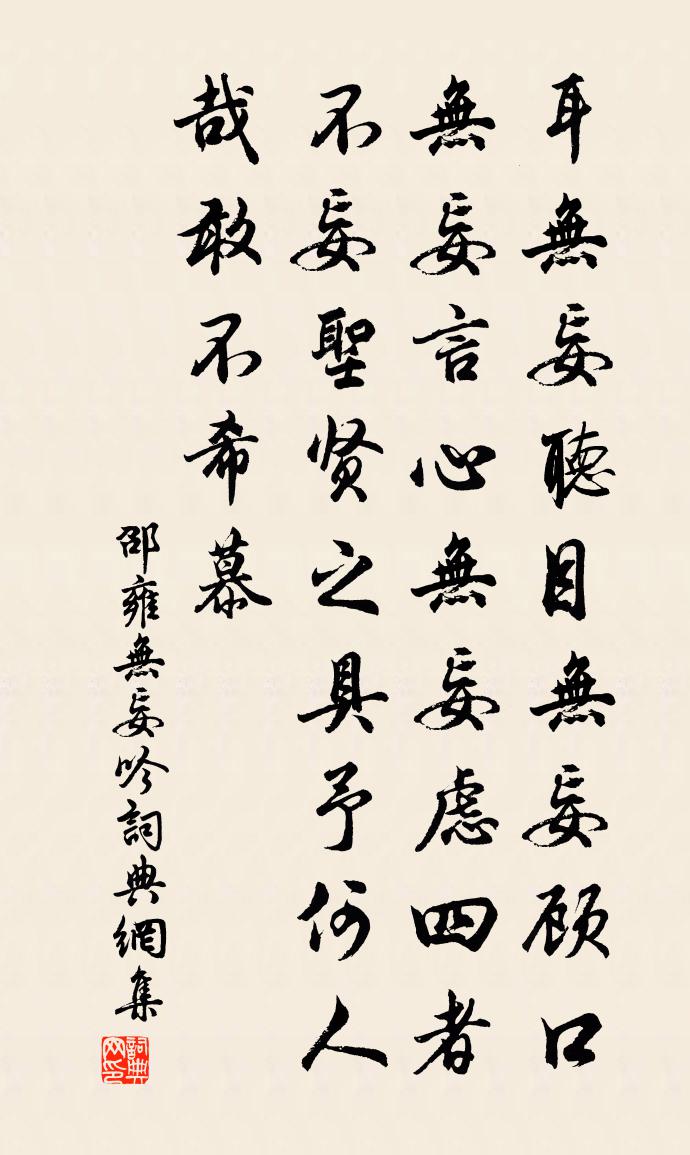 耳無妄聽目無妄顧口
無妄言心無妄慮四者
不妄聖贤之具予何人
哉敢不希慕
邵雍無妄吟詞典網集
詞典网印